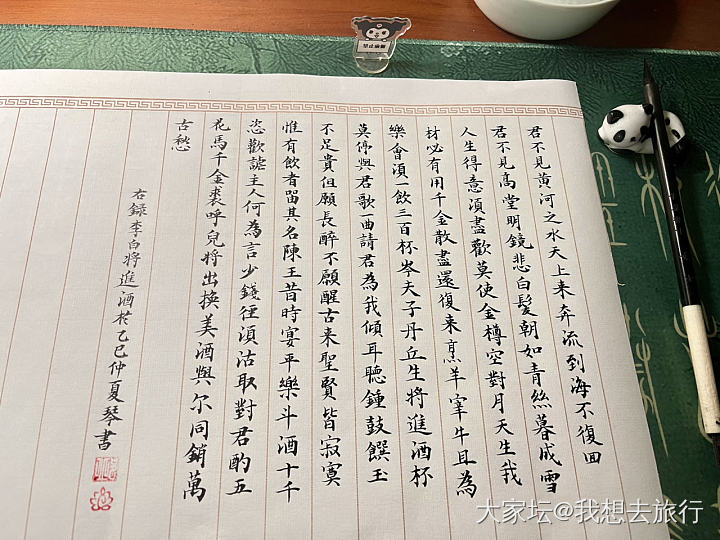 君不見黄河之水天上来奔流到海不復回
君不見高堂明鏡悲白髮朝如青絲暮成雪
人生得意須盡歡莫使金樽空對月天生我
材必有用千金散盡還復来烹羊宰牛且為
樂會須一飲三百杯岑夫子丹丘生將進酒杯
莫停與君歌一曲請君為我傾耳聽鍾鼓饌玉
不足貴但願長醉不願醒古来聖賢皆寂寞
惟有飲者留其名陳王昔時宴平樂斗酒十千
恣歡謔主人何為言少錢徑須沽取對君酌五
花馬千金裘呼兒將出換美酒與尔同銷萬
古愁
右録李白將進酒於乙巳仲夏琴書
大家坛@我想去旅行